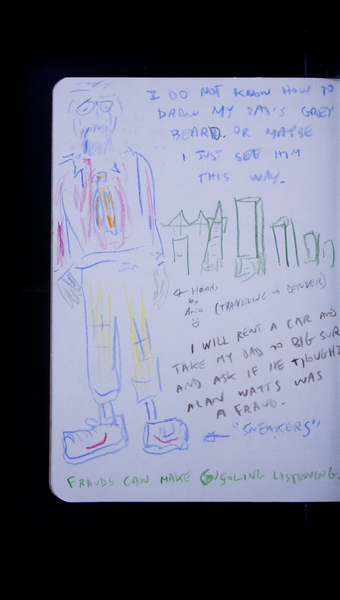 I DO NOT KNOW HOW TO
DRAW MY DAD'S GREY
BEARD. OR MAYBE
I JUST SEE HIM
THIS WAY.
← Hands
by
(TRAVELING → DENVER)
I WILL RENT A CAR AND
TAKE MY DAD TO BIG SUR
AND ASK IF HE THOUGHT
ALAN WATTS WAS
A FRAUD.
← "SNEAKERS"
FRAUDS CAN MAKE LISTENING.